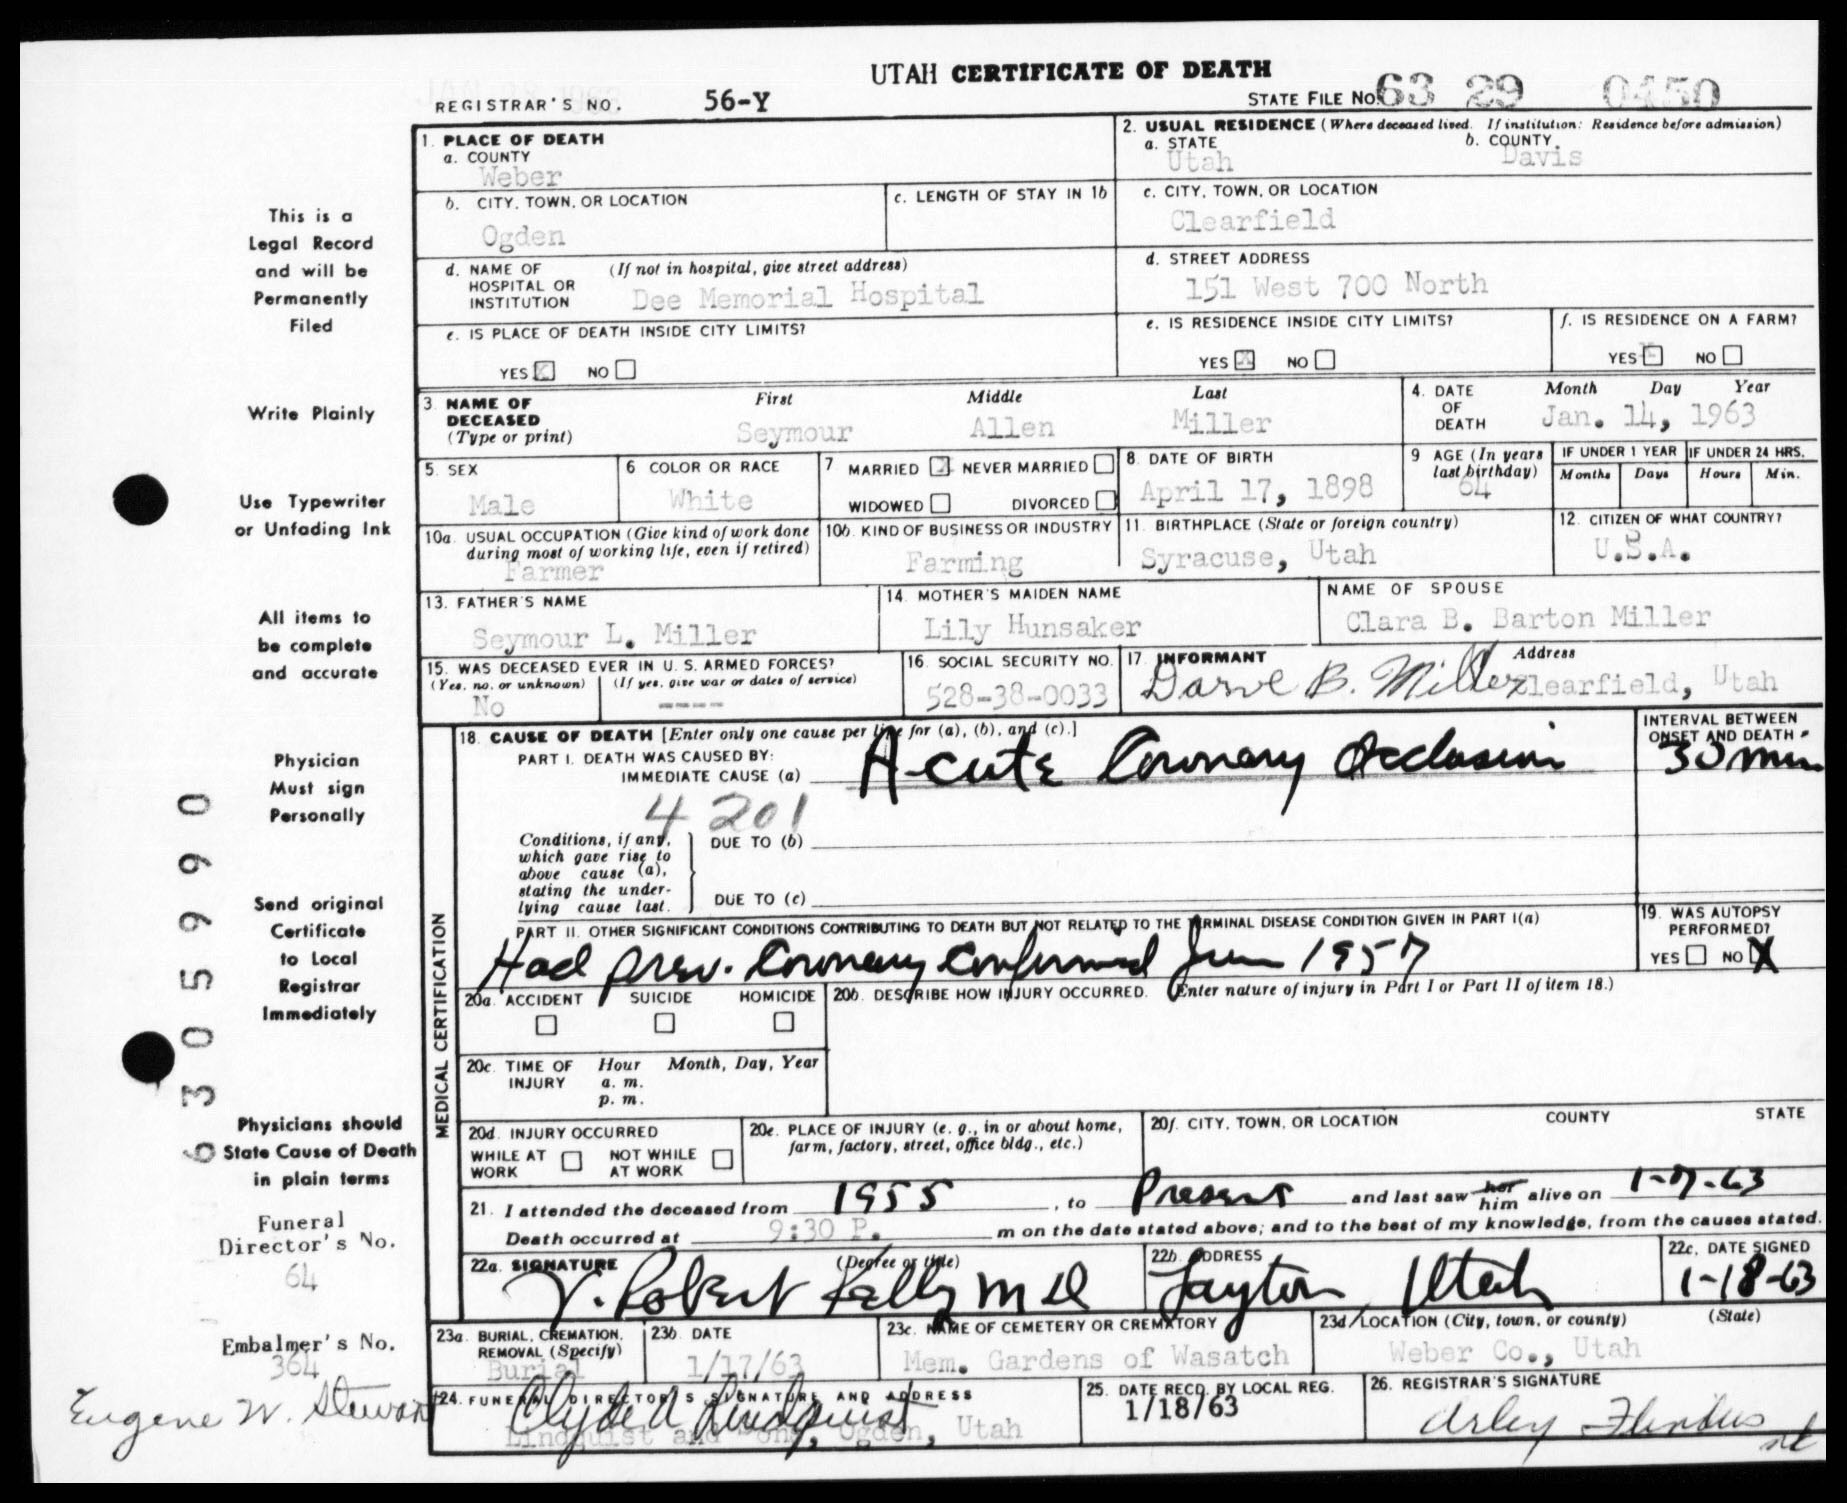 UTAH CERTIFICATE OF DEATH
REGISTRAR'S NO. 56-Y
STATE FILE NO. 63 29 0450
1. PLACE OF DEATH
a. COUNTY
Weber
2. USUAL RESIDENCE (Where deceased lived. If institution: Residence before admission)
a. STATE
Utah
b. COUNTY
Davis
b. CITY, TOWN, OR LOCATION
Ogden
c. LENGTH OF STAY IN 1b
c. CITY, TOWN, OR LOCATION
Clearfield
d. NAME OF HOSPITAL OR INSTITUTION
(If not in hospital, give street address)
Dee Memorial Hospital
d. STREET ADDRESS
151 West 700 North
e. IS PLACE OF DEATH INSIDE CITY LIMITS?
YES X NO
e. IS RESIDENCE INSIDE CITY LIMITS?
YES X NO
f. IS RESIDENCE ON A FARM?
YES NO
3. NAME OF DECEASED
(Type or print)
First Middle Last
Seymour Allen Miller
4. DATE OF DEATH
Month Day Year
Jan. 14, 1963
5. SEX
Male
6 COLOR OR RACE
White
7 MARRIED NEVER MARRIED
WIDOWED DIVORCED
8. DATE OF BIRTH
April 17, 1898
9 AGE (In years last birthday)
64
IF UNDER 1 YEAR
Months Days
IF UNDER 24 HRS.
Hours Min.
10a. USUAL OCCUPATION (Give kind of work done during most of working life, even if retired)
Farmer
10b. KIND OF BUSINESS OR INDUSTRY
Farming
11. BIRTHPLACE (State or foreign country)
Syracuse, Utah
12. CITIZEN OF WHAT COUNTRY?
U.S.A.
13. FATHER'S NAME
Seymour L. Miller
14. MOTHER'S MAIDEN NAME
Lily Hunsaker
NAME OF SPOUSE
Clara B. Barton Miller
15. WAS DECEASED EVER IN U. S. ARMED FORCES?
(Yes, no, or unknown) (If yes, give war or dates of service)
No ----
16. SOCIAL SECURITY NO.
528-38-0033
17. INFORMANT Address
B. Miller Clearfield, Utah
18. CAUSE OF DEATH [Enter only one cause per line for (a), (b), and (c).]
PART I. DEATH WAS CAUSED BY:
IMMEDIATE CAUSE (a) Acute Coronary Occlusion
INTERVAL BETWEEN ONSET AND DEATH
30 min
4201
Conditions, if any, which gave rise to above cause (a), stating the underlying cause last.
DUE TO (b)
DUE TO (c)
PART II. OTHER SIGNIFICANT CONDITIONS CONTRIBUTING TO DEATH BUT NOT RELATED TO THE TERMINAL DISEASE CONDITION GIVEN IN PART I(a)
Had prev. Coronary Confirmed 1957
19. WAS AUTOPSY PERFORMED?
YES NO X
MEDICAL CERTIFICATION
20a. ACCIDENT SUICIDE HOMICIDE
20b. DESCRIBE HOW INJURY OCCURRED. (Enter nature of injury in Part I or Part II of item 18.)
20c. TIME OF INJURY
Hour Month, Day, Year
a. m.
p. m.
20d. INJURY OCCURRED
WHILE AT WORK NOT WHILE AT WORK
20e. PLACE OF INJURY (e. g., in or about home, farm, factory, street, office bldg., etc.)
20f. CITY, TOWN, OR LOCATION COUNTY STATE
21. I attended the deceased from 1955, to Present and last saw her him alive on 1-7-63
Death occurred at 9:30 P. m on the date stated above; and to the best of my knowledge, from the causes stated.
22a. SIGNATURE (Degree or title)
V. Robert Kelly MD
22b. ADDRESS
Layton Utah
22c. DATE SIGNED
1-18-63
23a. BURIAL, CREMATION, REMOVAL (Specify)
Burial
23b. DATE
1/17/63
23c. NAME OF CEMETERY OR CREMATORY
Mem. Gardens of Wasatch
23d LOCATION (City, town, or county) (State)
Weber Co., Utah
24. FUNERAL DIRECTOR'S SIGNATURE AND ADDRESS
Clyde A Lindquist
Lindquist and Sons, Ogden, Utah
25. DATE RECD. BY LOCAL REG.
1/18/63
26. REGISTRAR'S SIGNATURE
This is a
Legal Record
and will be
Permanently
Filed
Write Plainly
Use Typewriter
or Unfading Ink
All items to
be complete
and accurate
Physician
Must sign
Personally
Send original
Certificate
to Local
Registrar
Immediately
Physicians should
State Cause of Death
in plain terms
Funeral
Director's No.
64
Embalmer's No.
364
Eugene W. Stewart
6305990